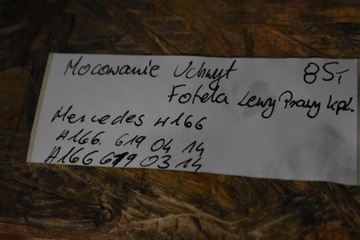 Mocowanie Uchwyt 85,-
Fotela Lewy Prawy kpl.
Mercedes A166
A166. 619 04 14
A166 619 03 14